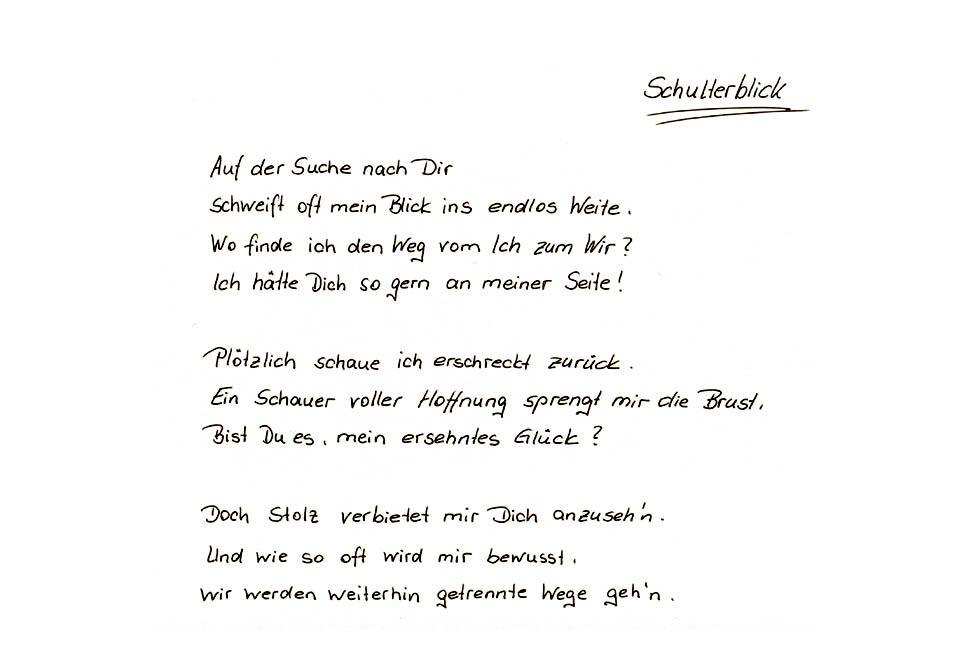 Schulterblick
Auf der Suche nach Dir
schweift oft mein Blick ins endlos Weite.
Wo finde ich den Weg vom Ich zum Wir?
Ich hätte Dich so gern an meiner Seite!
Plötzlich schaue ich erschreckt zurück.
Ein Schauer voller Hoffnung sprengt mir die Brust,
Bist Du es, mein ersehntes Glück?
Doch Stolz verbietet mir Dich anzuseh'n.
Und wie so oft wird mir bewusst,
wir werden weiterhin getrennte Wege geh'n.